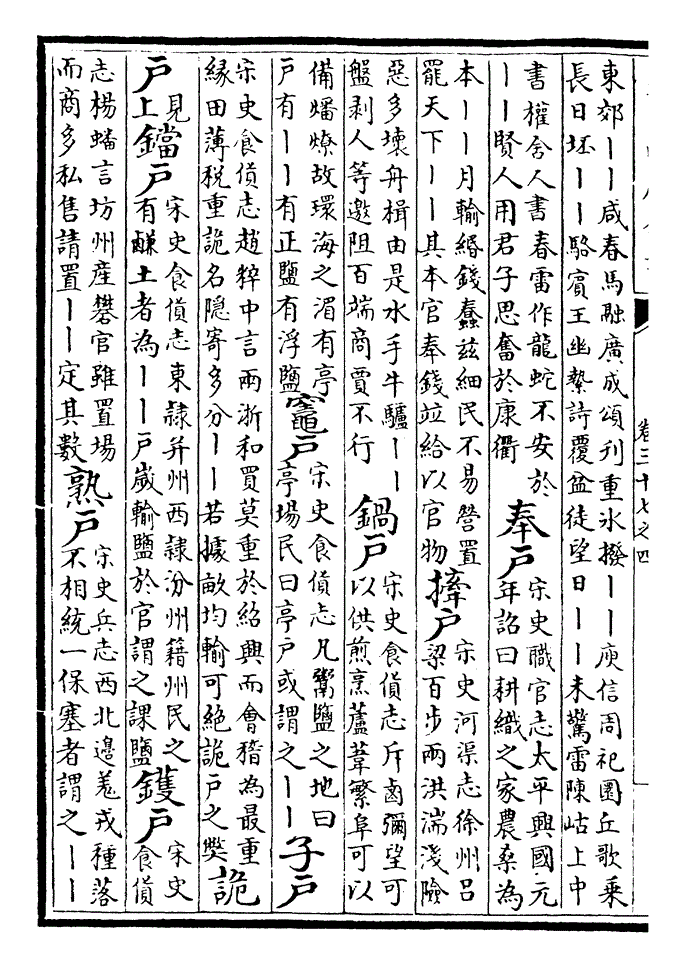 東郊——咸春馬融廣成頌刋重氷撥——庾信周祀圜丘歌乗
長日坯——駱賓王幽縶詩覆盆徒望日——未驚雷陳岵上中
書權舍人書春雷作龍蛇不安於
——賢人用君子思奮於康衢
奉戶
宋史職官志太平興國元
年詔曰耕織之家農桑為
本——月輸緡錢蠢兹細民不易營置
罷天下——其本官奉錢竝給以官物
撁戶
宋史河渠志徐州吕
梁百步兩洪湍淺險
惡多壞舟楫由是水手牛驢——
盤剥人等邀阻百端商賈不行
鍋戶
宋史食貨志斥鹵彌望可
以供煎烹蘆葦繁阜可以
備燔燎故環海之湄有亭
戶有——有正鹽有浮鹽
竈戶
宋史食貨志凡鬻鹽之地曰
亭場民曰亭戶或謂之——
子戶
宋史食貨志趙粹中言兩浙和買莫重於紹興而會稽為最重
緣田薄税重詭名隐寄多分——若據畝均輸可絶詭戶之弊
詭
戶
見
上
鐺戶
宋史食貨志東隸并州西隸汾州籍州民之
有鹻土者為——戶嵗輸鹽於官謂之課鹽
鑊戶
宋史
食貨
志楊蟠言坊州産礬官雖置場
而商多私售請置——定其數
熟戶
宋史兵志西北邊羌戎種落
不相統一保塞者謂之——
卷三十七之四